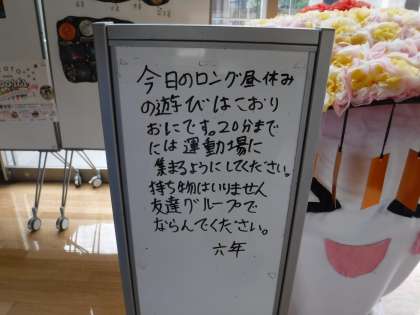 今日のロング昼休み
の遊びはこおり
おにです。20分まで
には運動場に
集まるようにしてください。
持ち物はいりません
友達グループで
ならんでください。
六年